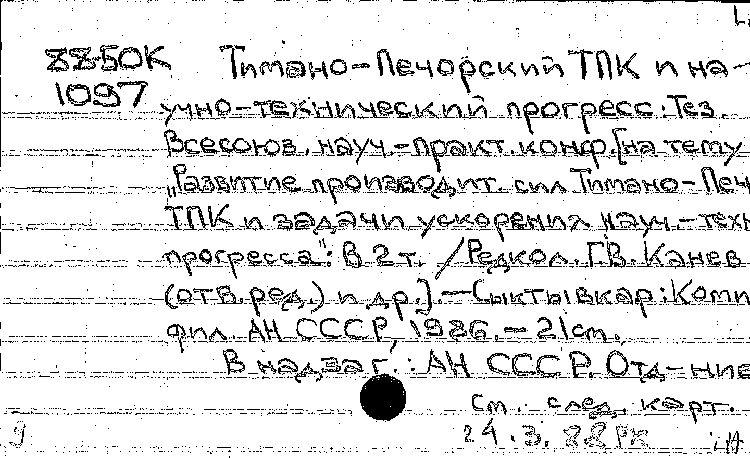 88-50К Тимано-Печорский ТПК и на-
1097 учно-технический прогресс: Тез.
Всесоюз. науч.-практ. конф. [на тему
„Развитие производит. сил Тимано-Печ
ТПК и задачи ускорения науч.-техн
прогресса": В 2 т. / Редкол. Г.В. Канев
(отв. ред.) и др.]. - Сыктывкар: Коми
фил. АН СССР, 1986. - 21 см.
В надзаг.: АН СССР. Отд-ние
см. след. карт.
9 24.3.88 РК